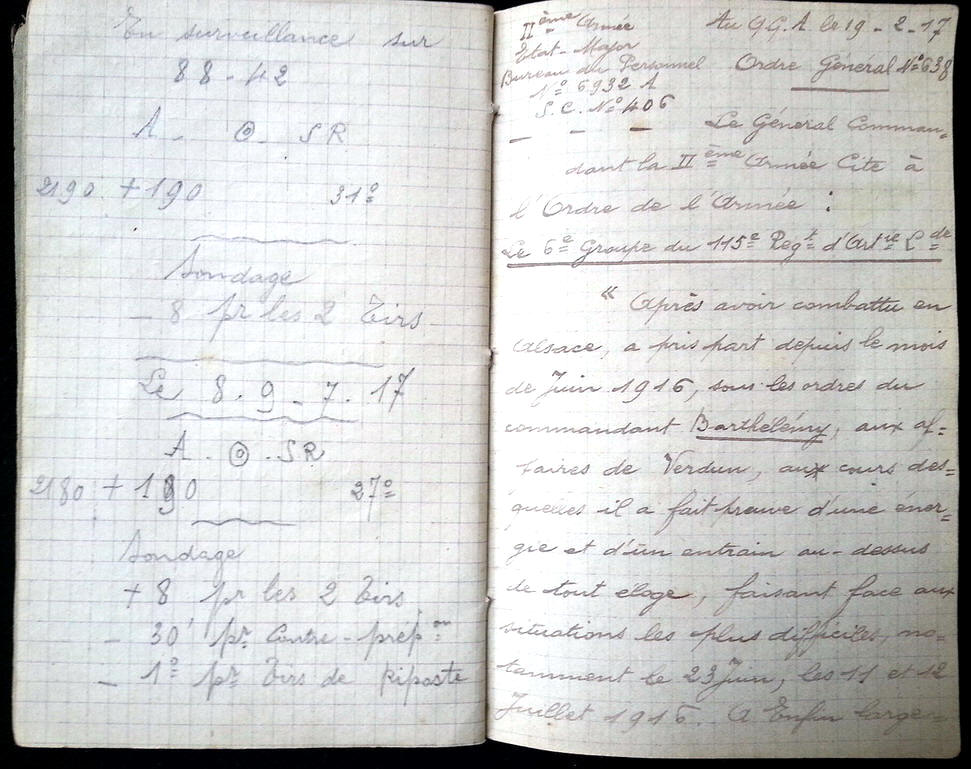 En surveillance sur
88-42
A - ⊙ - SR
2190 +190 31°
Sondage
- 8 pr les 2 Tirs -
Le 8. 9 - 7. 17
A - ⊙ - SR
2180 +190 27°
Sondage
+ 8 pr les 2 Tirs
- 30' pr Contre-prépon
- 1° pr Tirs de Riposte
IIème Armée Au Q.G.A le 19 - 2 - 17
Etat-Major
Bureau du Personnel Ordre Général N° 638
N° 6932 A
S.C. N° 406
- - - Le Général Comman=
dant la IIème Armée Cite à
l'Ordre de l'Armée :
Le 6e Groupe du 115e Regt d'Artie Lde
« Après avoir combattu en
Alsace, a pris part depuis le mois
de Juin 1916, sous les ordres du
commandant Barthélémy, aux af=
faires de Verdun, aux cours des=
quelles il a fait preuve d'une éner=
gie et d'un entrain au-dessus
de tout éloge, faisant face aux
situations les plus difficiles, no=
tamment le 23 Juin, les 11 et 12
Juillet 1916. A Enfin large=